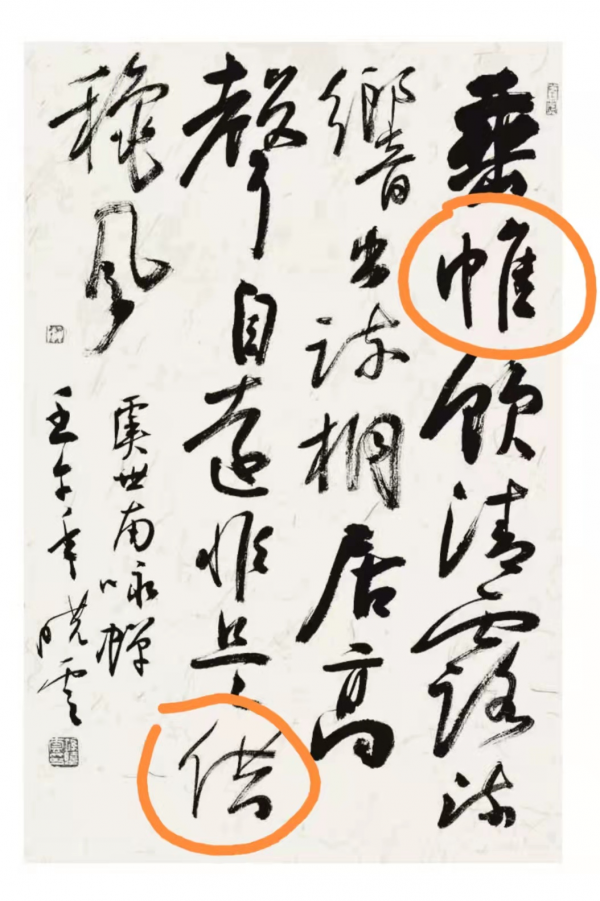 垂帷飲清露流
響出疏桐居高
聲自遠非是借
穐風
虞世南咏蟬
壬午年曉雲